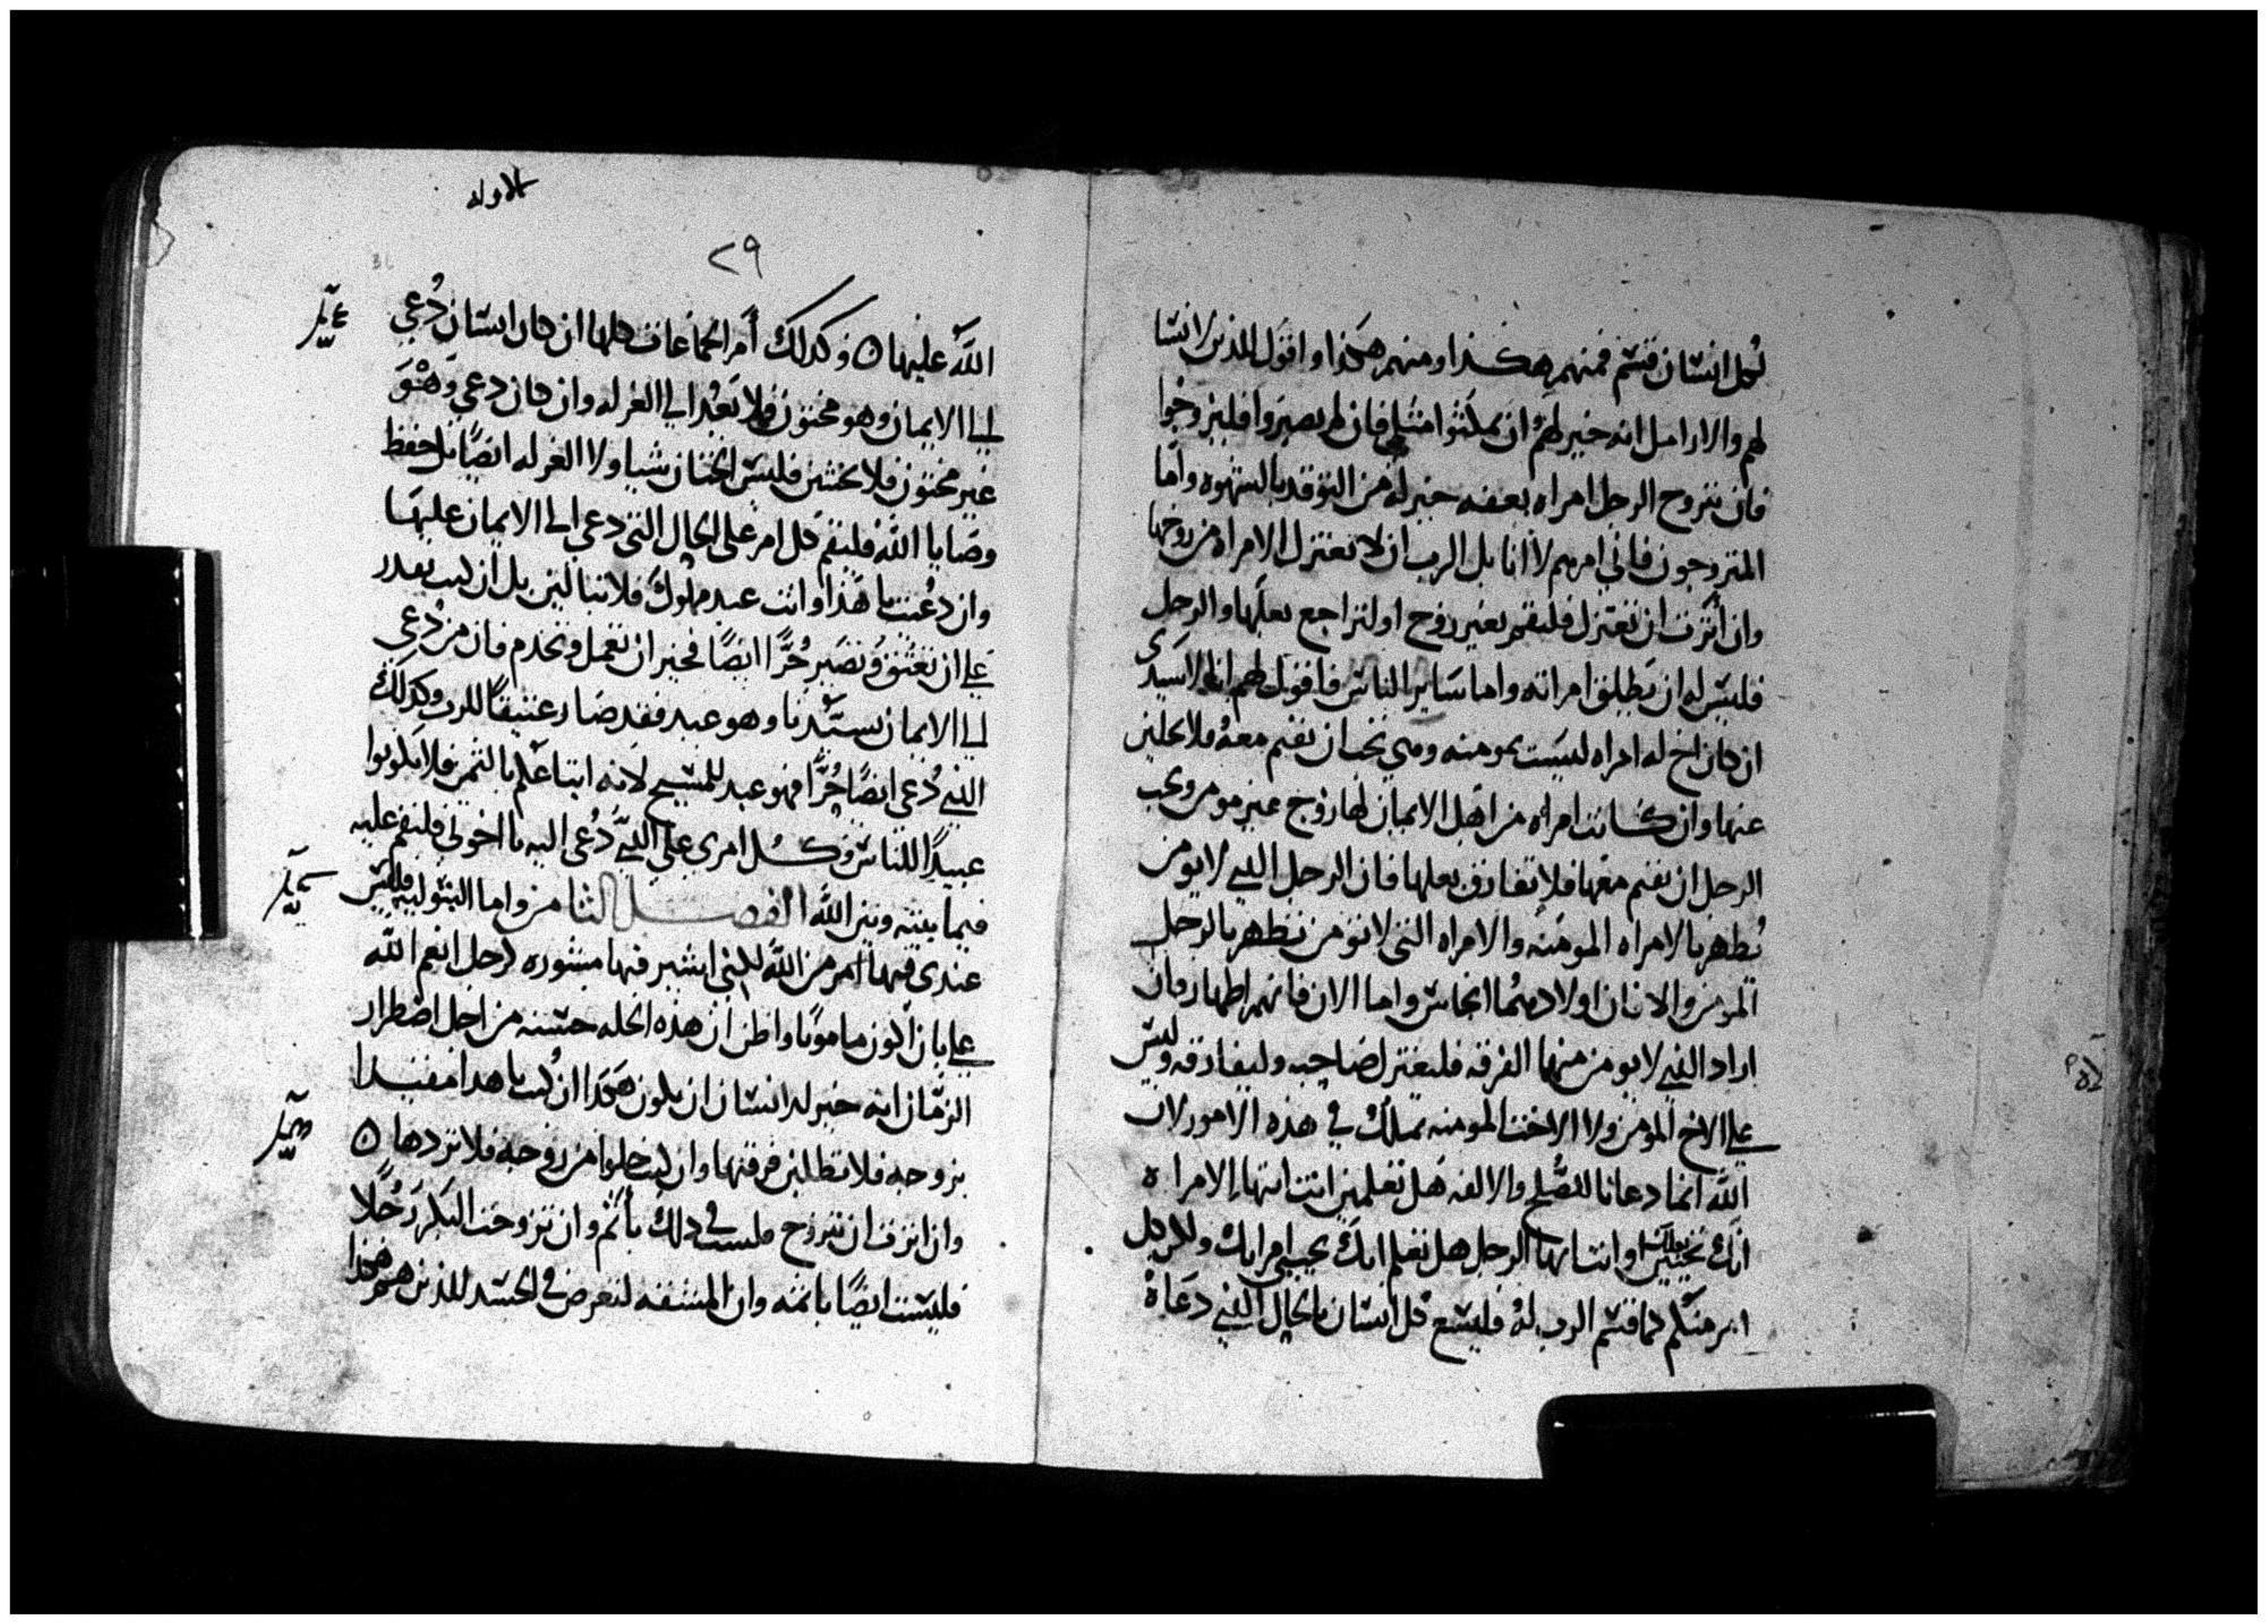 لكل انسان قسم فمنهم هكذا ومنهم هكذا واقول للذين لا نسا
لهم والارامل انه خير لهم ان يمكثوا مثلي فان لم يصبروا فليتزوجوا
فان تزوج الرجل امراه بعفه خير له من التوقد بالشهوه واما
المتزوجون فاني امرهم لا انا بل الرب ان لا تعتزل الامراه من زوجها
وان اثرت ان تعتزل فلتقم بغير زوج او لتراجع بعلها والرجل
فليس له ان يطلق امراته واما ساير الناس فاقول لهم انا لا سيدي
ان كان اخ له امراه ليست بمومنه وهي تحب ان تقيم معه فلا يخلين
عنها وان كانت امراه من اهل الايمان لها زوج غير مومن ويحب
الرجل ان يقيم معها فلا تفارق بعلها فان الرجل الذي لا يومن
يُطهر بالامراه المومنه والامراه التي لا تومن تطهر بالرجل
المومن والا فان اولادهما انجاس واما الان فانهم اطهار فان
اراد الذي لا يومن منهما الفرقه فليعتزل صاحبه وليفارقه وليس
على الاخ المومن ولا الاخت المومنه تملك في هذه الامور لان
الله انما دعانا للصلح والالفه هل تعلمين انت ايتها الامراه
انك تحيين بعلك او انت ايها الرجل هل تعلم انك تحيي امراتك ولكل
امر منكم كما قسم الرب له فليسع كل انسان بالحال الذي دعاه
الاوله
٢٩
الله عليها ٥ وكذلك أمر الجماعات كلها ان كان انسان دُعي
الى الايمان وهو مختون فلا يَعُد الى الغرله وان كان دعي وهو
غير مختون فلا يختتن فليس الختان شيا ولا الغرله ايضًا بل حفظ
وصايا الله فليقم كل امر على الحال التي دعي الى الايمان عليها
وان دُعيت يا هذا وانت عبد مملوك فلا تبالين بل ان كنت تقدر
على ان تعتق وتصير حُرًّا ايضًا فخير ان تعمل وتخدم فان من دُعي
الى الايمان بسيدنا وهو عبد فقد صار عتيقًا للرب وكذلك
الذي دُعي ايضًا حُرًّا فهو عبد للمسيح لانه ابتاعكم بالثمن فلا تكونوا
عبيدًا للناس وكل امري على الذي دُعي اليه يا اخوتي فليقم عليه
فيما بينه وبين الله الفصل الثامن واما البتوليه فليس
عندي فيها امر من الله لكني اشير فيها مشوره كرجل انعم الله
علي بان اكون مامونًا واظن ان هذه الخله حسنه من اجل اضطرار
الزمان انه خير للانسان ان يكون هكذا ان كنت يا هذا مقيدا
بزوجه فلا تطلبن فرقتها وان كنت خلوا من زوجه فلا تردها ٥
وان اثرت ان تتزوج فلست في ذلك بأثم وان تزوجت البكر رجُلًا
فليست ايضًا باثمه وان المشقه لتعرض في الجسد للذين هم هكذا